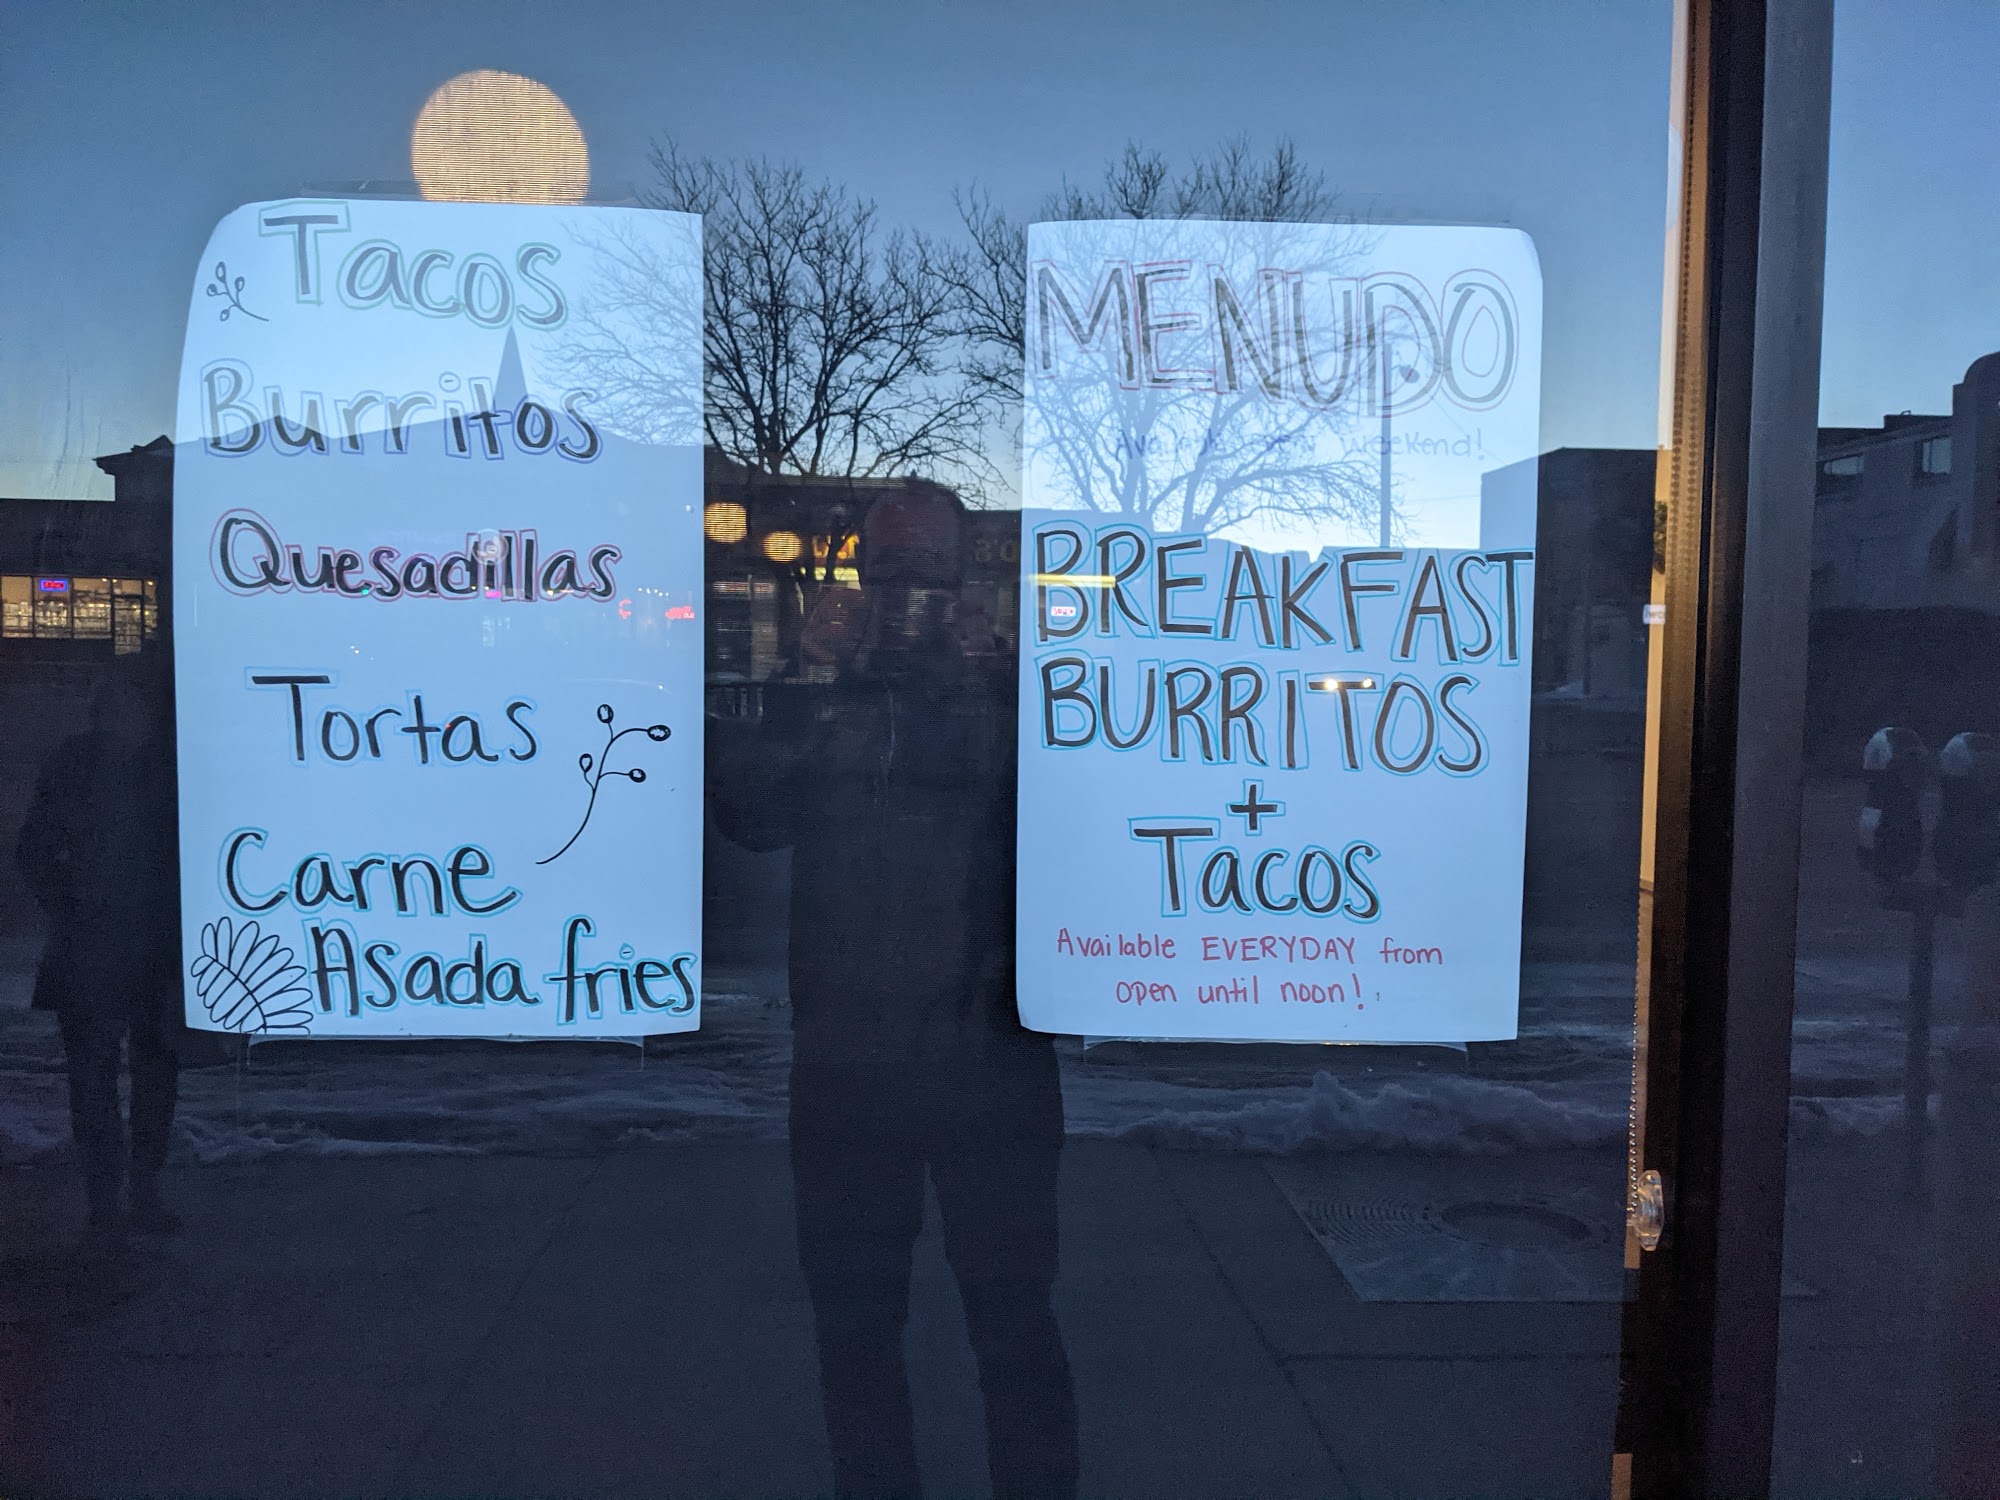 Tacos
Burritos
Quesadillas
Tortas
Carne
Asada fries
MENUDO
Available every weekend!
BREAKFAST
BURRITOS
+
Tacos
Available EVERYDAY from
open until noon!